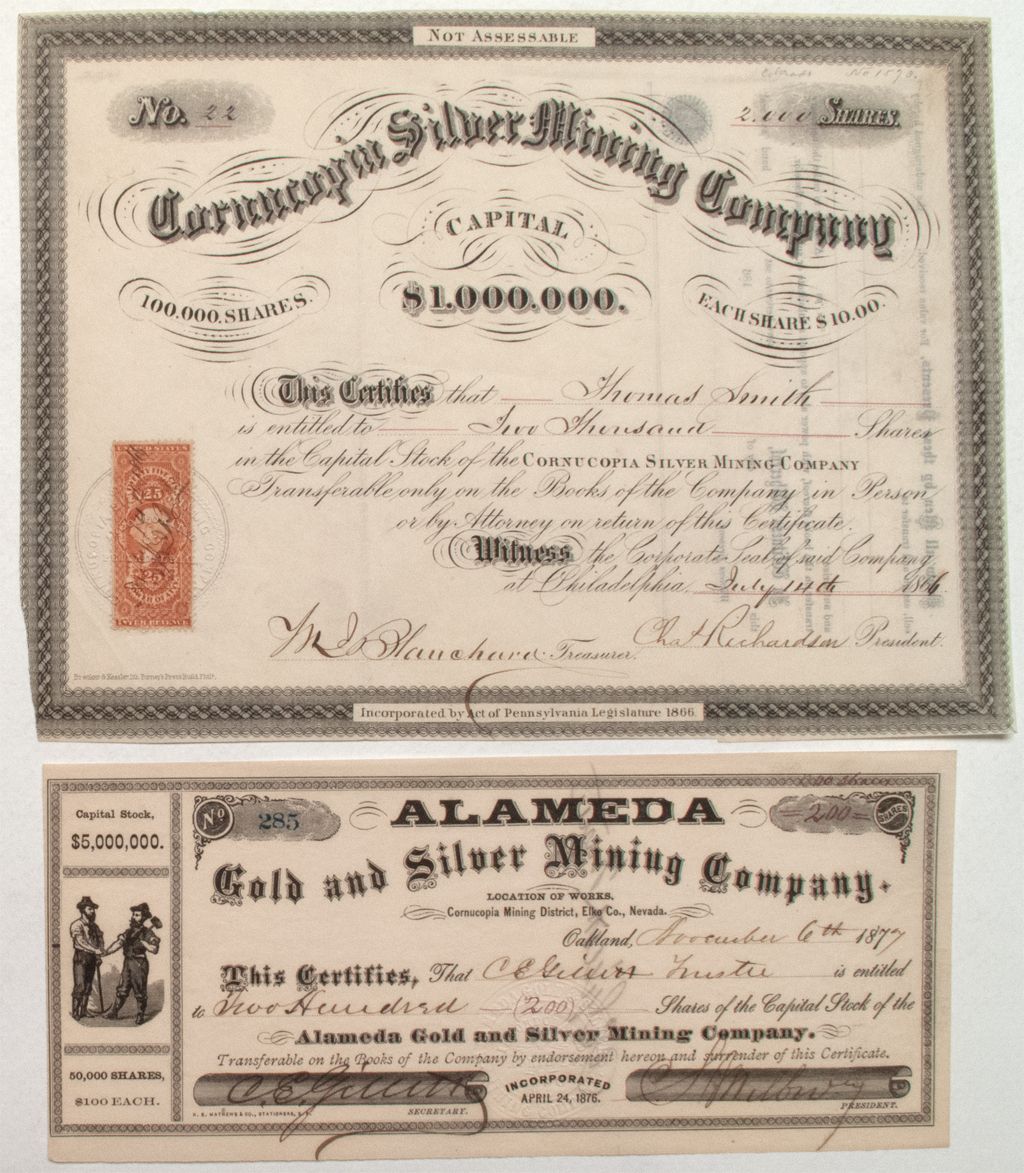 NOT ASSESSABLE
No. 22
2.000 SHARES.
Cornucopia Silver Mining Company
CAPITAL
100,000. SHARES.
$1.000.000.
EACH SHARE $10.00.
This Certifies that Thomas Smith
is entitled to Two Thousand Shares
in the Capital Stock of the CORNUCOPIA SILVER MINING COMPANY
Transferable only on the Books of the Company in Person
or by Attorney on return of this Certificate.
Witness the Corporate Seal of said Company
at Philadelphia, July 14th 1866
Blanchard Treasurer.
Chas Richardson President.
Incorporated by Act of Pennsylvania Legislature 1866.
Capital Stock,
$5,000,000.
No 285
ALAMEDA
200 SHARES
Gold and Silver Mining Company.
LOCATION OF WORKS.
Cornucopia Mining District, Elko Co., Nevada.
Oakland, November 6th 1877
This Certifies, That C E Gillett Trustee is entitled
to Two Hundred (200) Shares of the Capital Stock of the
Alameda Gold and Silver Mining Company.
Transferable on the Books of the Company by endorsement hereon and surrender of this Certificate.
50,000 SHARES,
$100 EACH.
C. E. Gillett
SECRETARY.
INCORPORATED
APRIL 24, 1876.
PRESIDENT.